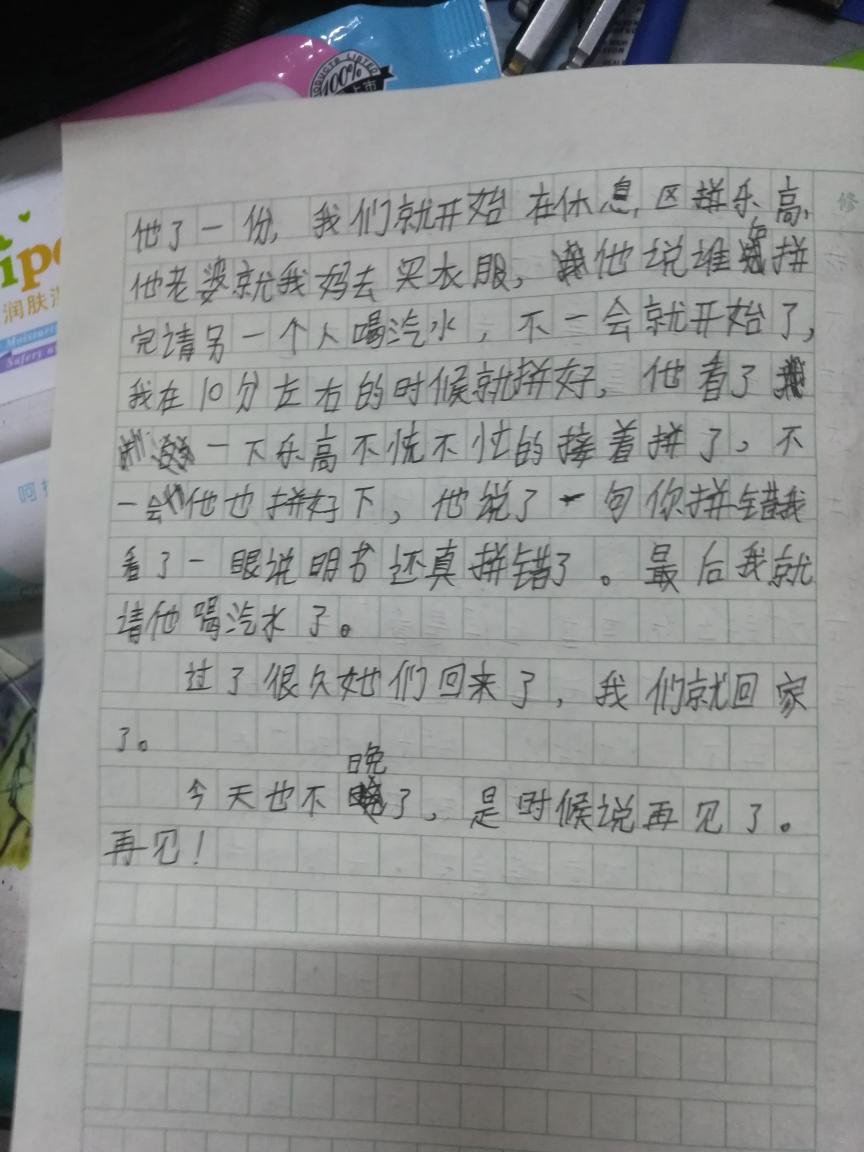 PRODUCTS LISTED
100%
上市
修
他了一份,我们就开始在休息区拼乐高,
他老婆就我妈去买衣服,他说谁先拼
完请另一个人喝汽水,不一会就开始了,
我在10分左右的时候就拼好,他看了
一下乐高不慌不忙的接着拼了,不
一会他也拼好下,他说了一句你拼错我
看了一眼说明书还真拼错了。最后我就
请他喝汽水了。
过了很久她们回来了,我们就回家
了。
今天也不晚了,是时候说再见了。
再见!
ipe
润肤